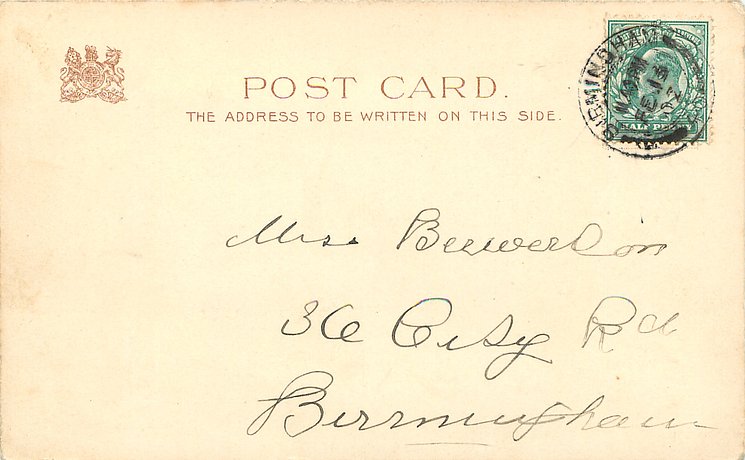 POST CARD.
THE ADDRESS TO BE WRITTEN ON THIS SIDE.
BIRMINGHAM
FE 13
HALF PENNY
Mrs. Beeverton
36 City Rd
Birmingham